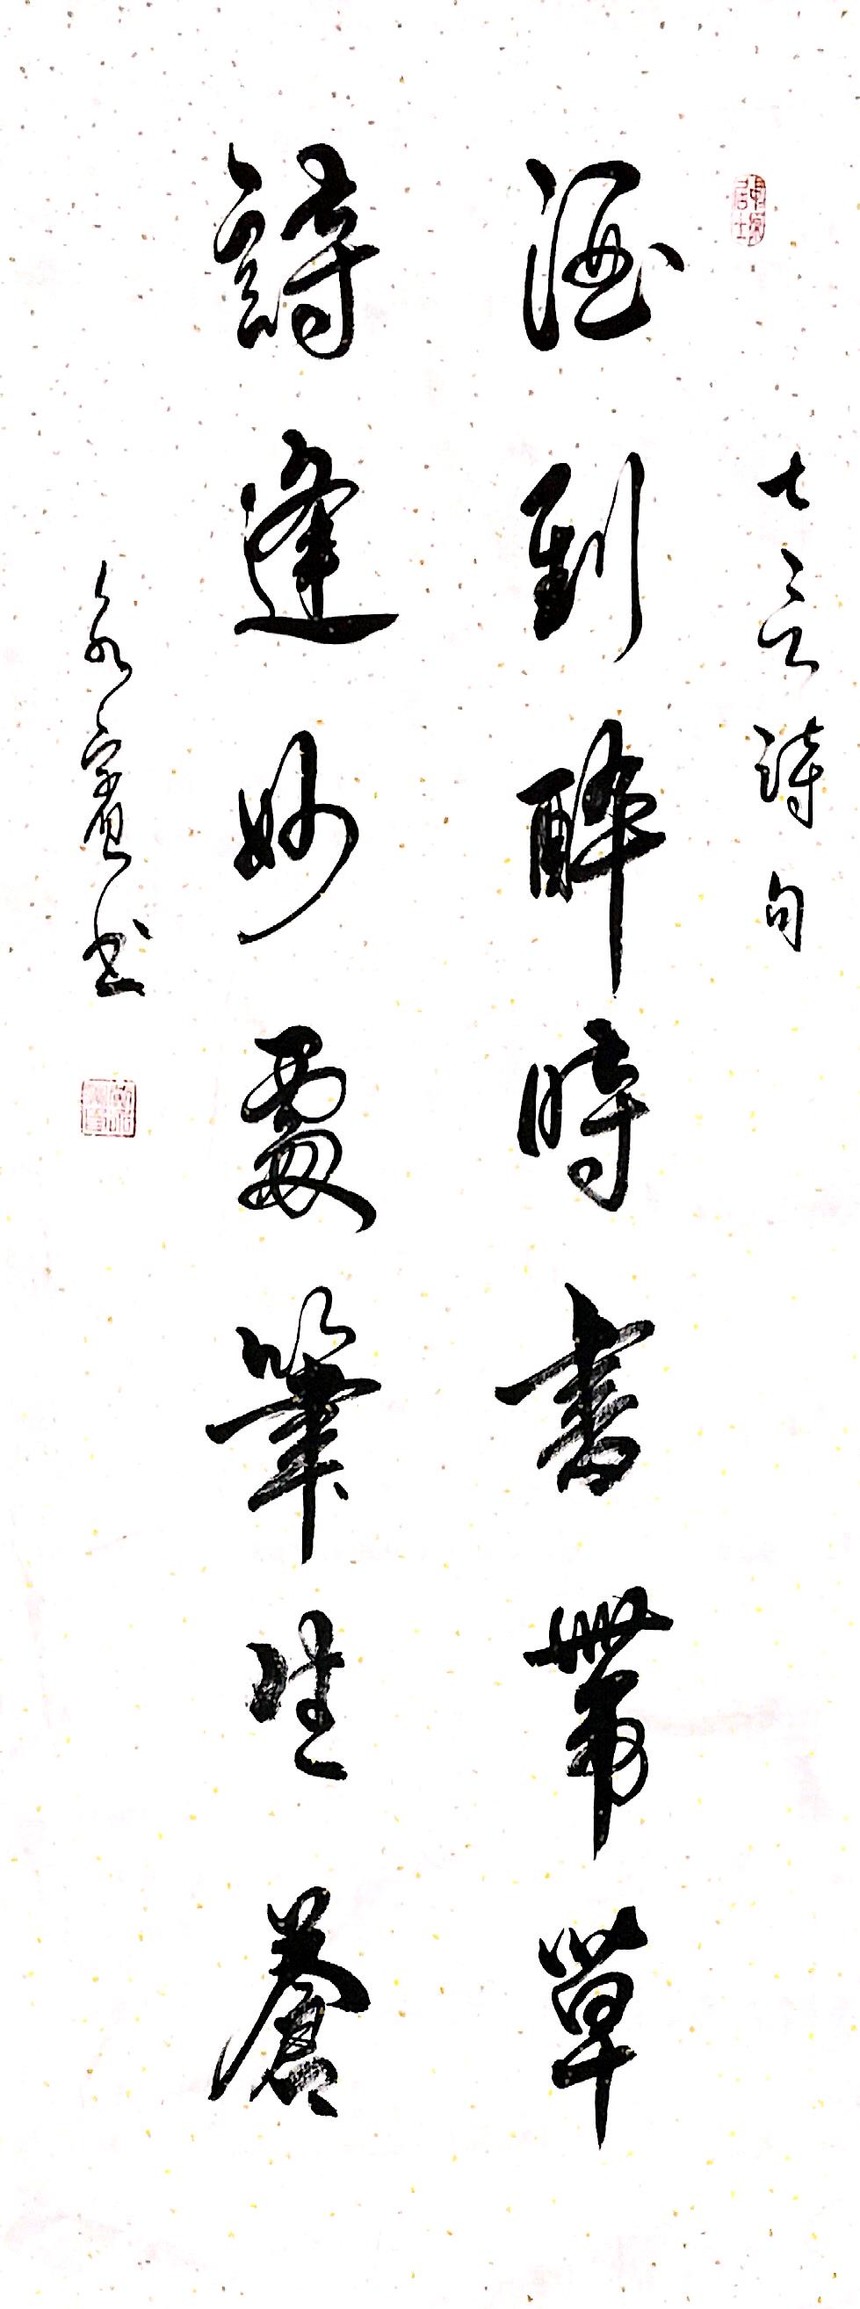 七言詩句
酒到醉時書帶草
詩逢妙處筆生蒼
永寔书